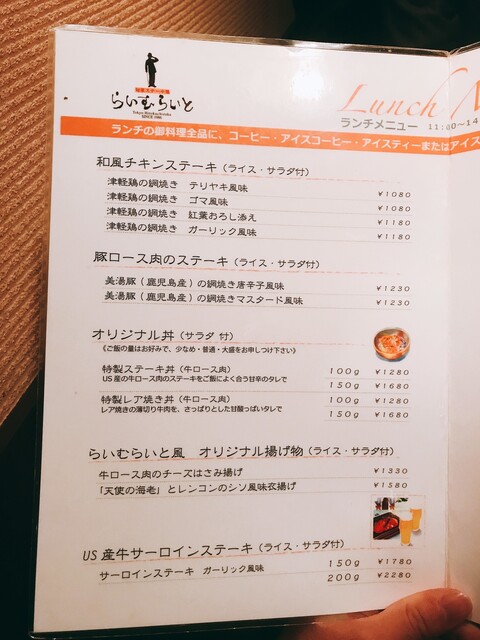 炭焼ステーキ屋
らいむらいと
Tokyo Shinjuku Kiseika
SINCE 1986
Lunch M
ランチメニュー 11:00〜14
ランチの御料理全品に、コーヒー・アイスコーヒー・アイスティーまたはアイス
和風チキンステーキ（ライス・サラダ付）
津軽鶏の網焼き テリヤキ風味 ¥1080
津軽鶏の網焼き ゴマ風味 ¥1080
津軽鶏の網焼き 紅葉おろし添え ¥1180
津軽鶏の網焼き ガーリック風味 ¥1180
豚ロース肉のステーキ（ライス・サラダ付）
美湯豚（鹿児島産）の網焼き唐辛子風味 ¥1230
美湯豚（鹿児島産）の網焼きマスタード風味 ¥1230
オリジナル丼（サラダ 付）
《ご飯の量はお好みで、少なめ・普通・大盛をお申しつけ下さい》
特製ステーキ丼（牛ロース肉） 100g ¥1280
US産の牛ロース肉のステーキをご飯によく合う甘辛のタレで 150g ¥1680
特製レア焼き丼（牛ロース肉） 100g ¥1280
レア焼きの薄切り牛肉を、さっぱりとした甘酸っぱいタレで 150g ¥1680
らいむらいと風 オリジナル揚げ物（ライス・サラダ付）
牛ロース肉のチーズはさみ揚げ ¥1330
「天使の海老」とレンコンのシソ風味衣揚げ ¥1580
US産牛サーロインステーキ（ライス・サラダ付）
サーロインステーキ ガーリック風味 150g ¥1780
200g ¥2280